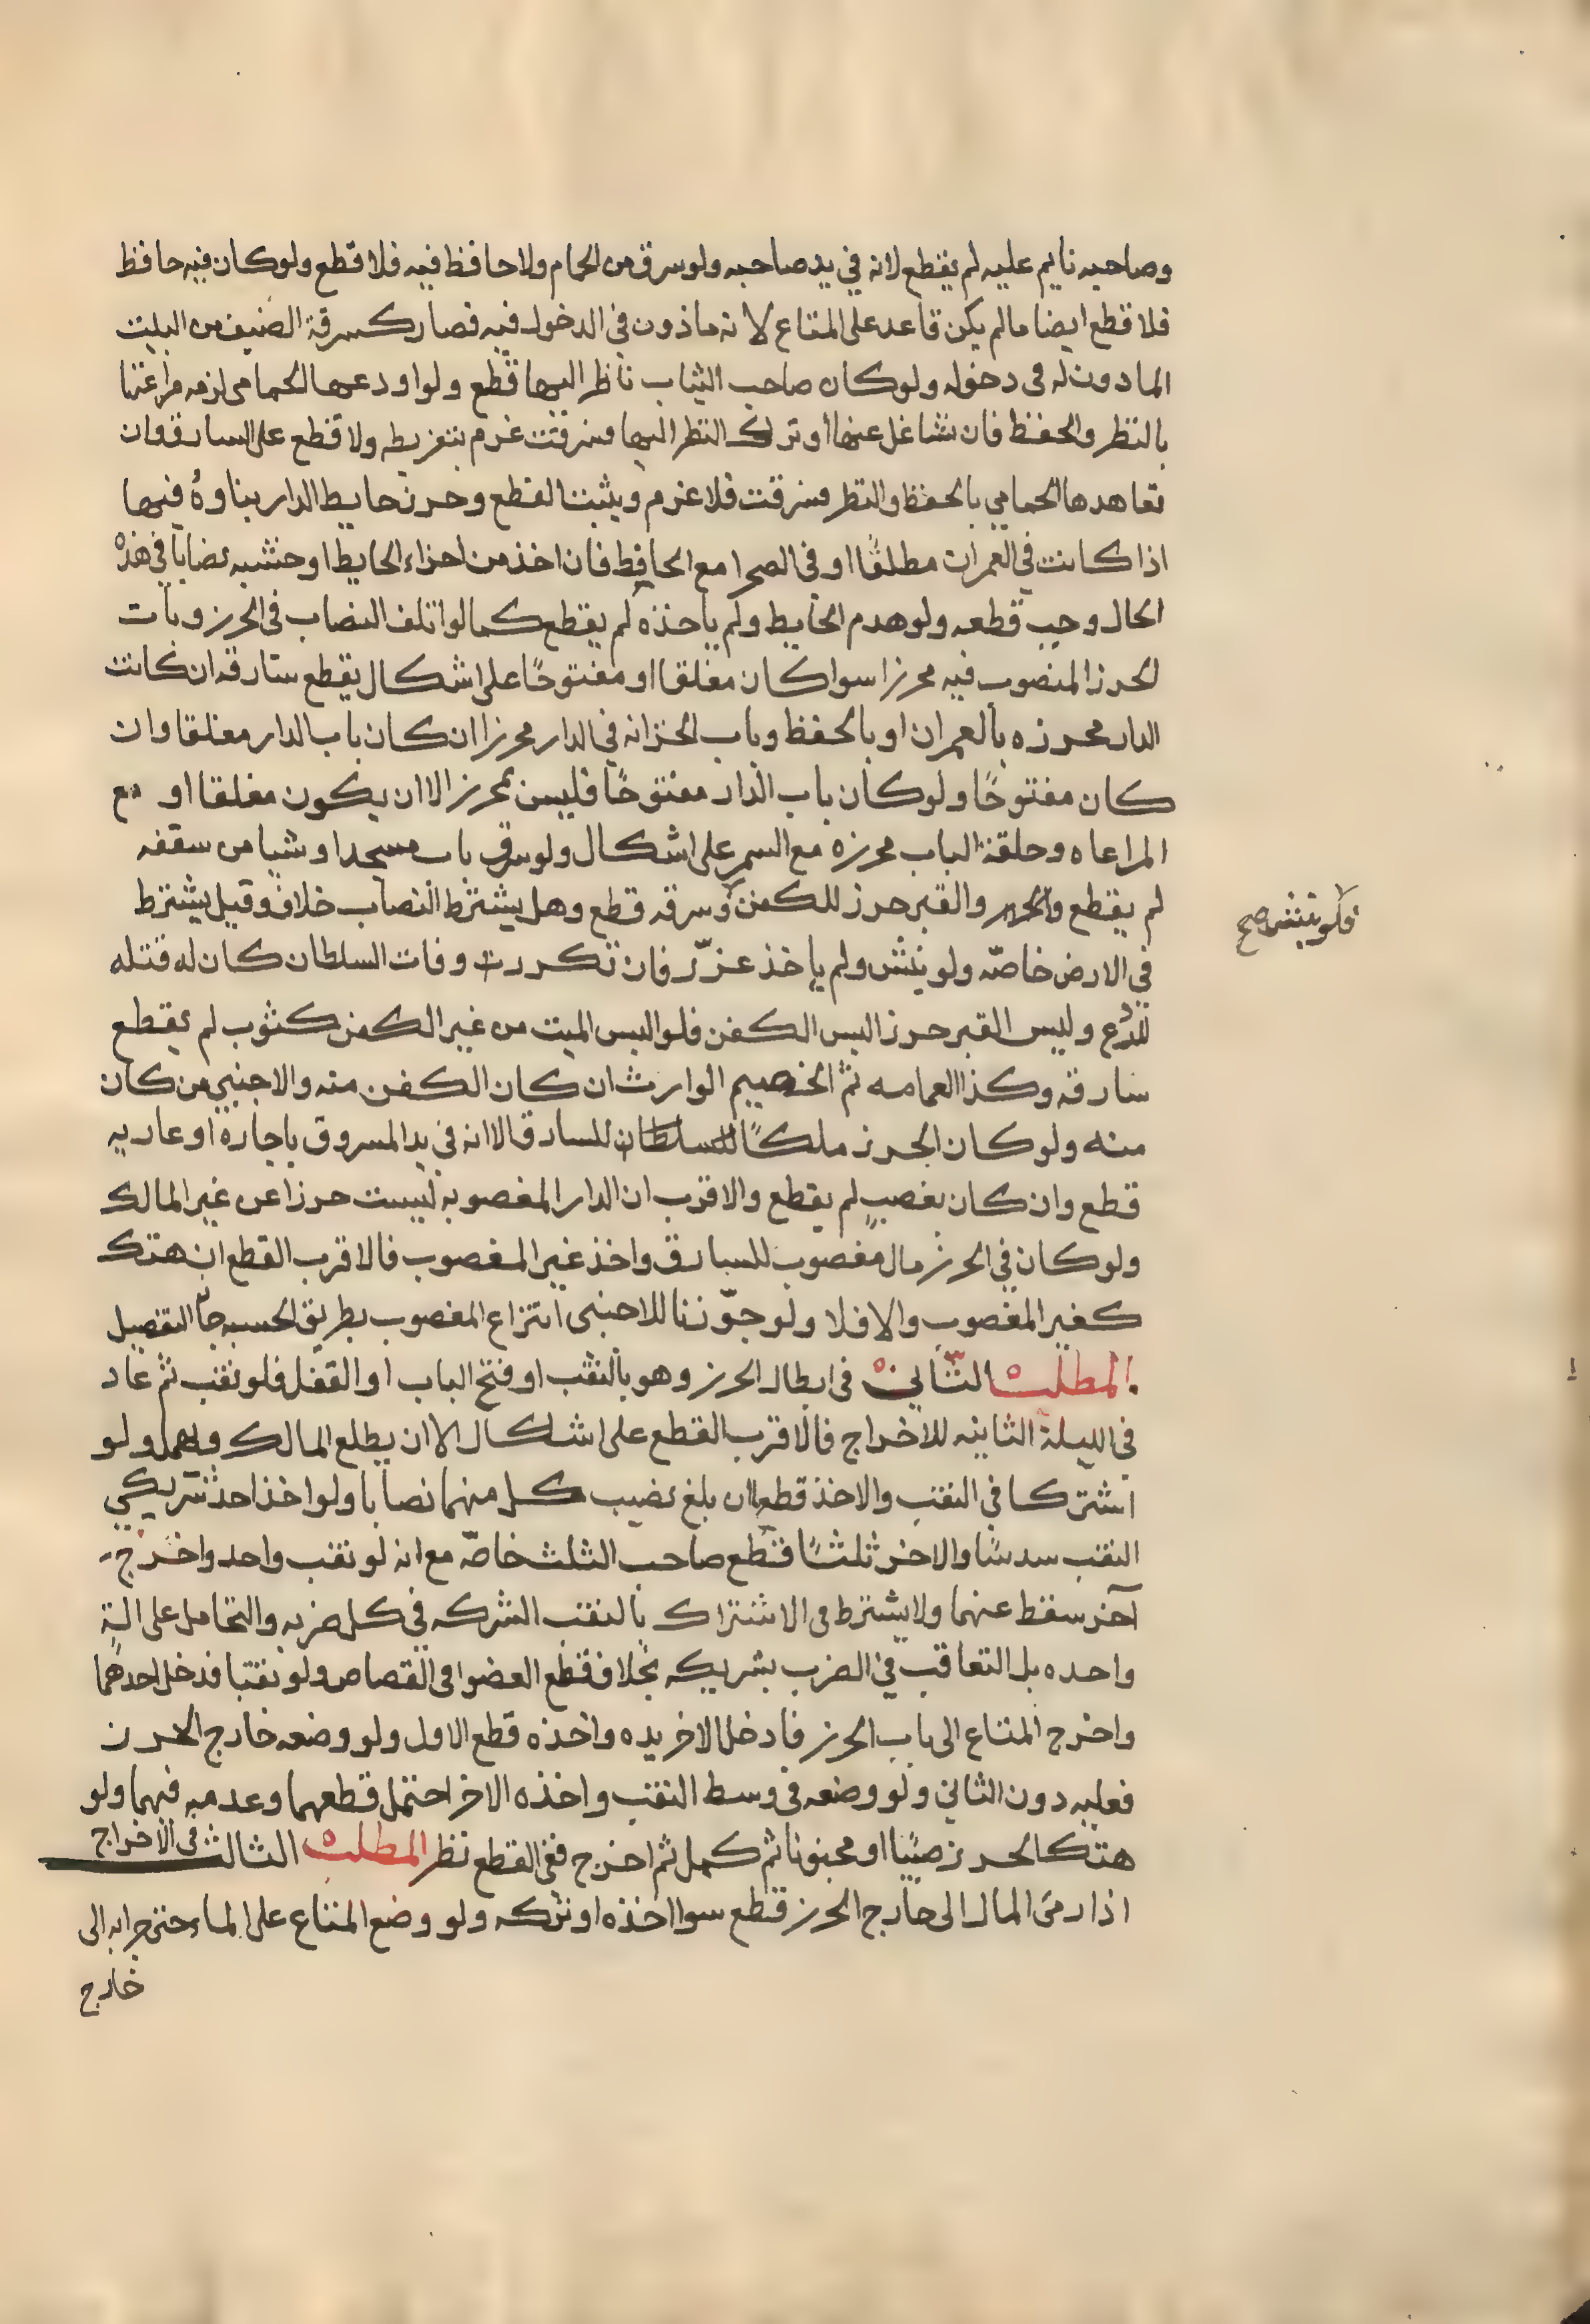 وصاحبه نايم عليه لم يقطع لانه في يد صاحبه ولو سرق من الحمام ولا حافظ فيه فلا قطع ولو كان فيه حافظ
فلا قطع ايضا ما لم يكن قاعد على المتاع لانه ماذون في الدخول فيه فصار كسرقة الضيف من البيت
الماذون له في دخوله ولو كان صاحب الثياب ناظرا اليها قطع ولو اودعها الحمامي لزمه مراعتها
بالنظر والحفظ فان تشاغل عنها او ترك النظر اليها فسرقت غرم بتفريطه ولا قطع على السارق وان
تعاهدها الحمامي بالحفظ والنظر فسرقت فلا غرم ويثبت القطع وحرز حايط الدار بناوهُ فيها
اذا كانت في العمران مطلقًا او في الصحرا مع الحافظ فان اخذ من اجزاء الحايط او خشبه نصابا في هذه
الحال وجب قطعه ولو هدم الحايط ولم ياخذه لم يقطع كما لو اتلف النصاب في الحرز وباب
الحرز المنصوب فيه محرز سوا كان مغلقا او مفتوحًا على اشكال يقطع سارقه ان كانت
الدار محرزه بالعمران او بالحفظ وباب الخزانه في الدار محرز ان كان باب الدار مغلقا وان
كان مفتوحًا ولو كان باب الدار مفتوحًا فليس بمحرز الا ان يكون مغلقا او مع
المراعاه وحلقة الباب محرزه مع السمر على اشكال ولو سرق باب مسجد او شيا من سقفه
لم يقطع والقبر حرز للكفن وسرقه قطع وهل يشترط النصاب خلاف وقيل يشترط
فلو نبش صح
في الارض خاصّه ولو نبش ولم ياخذ عزّر فان تكررت وفات السلطان كان له قتله
للردع وليس القبر حرز اليس الكفن فلو البس الميت من غير الكفن كثوب لم يقطع
سارقه وكذا العمامه ثم الخصيم الوارث ان كان الكفن منه والاجنبي من كان
منه ولو كان الحرز ملكًا للسارق الا انه في يد المسروق باجاره او عاريه
قطع وان كان بغصبٍ لم يقطع والاقرب ان الدار المغصوبه ليست حرزا عن غير المالك
ولو كان في الحرز مال مغصوب للسارق واخذ غير المغصوب فالاقرب القطع ان هتك
كغير المغصوب والا فلا ولو جوّزنا للاجنبي انتزاع المغصوب بطريق الحسبه جا التفصيل
المطلب الثاني في ابطال الحرز وهو بالنقب او فتح الباب او القفل فلو نقب ثم عاد
في الليلة الثانيه للاخراج فالاقرب القطع على اشكال الا ان يطلع المالك ويهمل ولو
اشتركا في النقب والاخذ قطعا ان بلغ نصيب كل منهما نصابا ولو اخذ احد شريكي
النقب سدسًا والاخر ثلثًا قطع صاحب الثلث خاصّه مع انه لو نقب واحد واخرج
آخر سقط عنهما ولا يشترط في الاشتراك بالنقب الشركه في كل ضربه والتحامل على الةٍ
واحده بل التعاقب في الضرب بشريكه بخلاف قطع العضو في القصاص ولو نقبا فدخل احدهما
واخرج المتاع الى باب الحرز فادخل الاخر يده واخذه قطع الاول ولو وضعه خارج الحرز
فعليه دون الثاني ولو وضعه في وسط النقب واخذه الاخر احتمل قطعهما وعدمه فيهما ولو
هتك الحرز صبيًا او مجنونا ثم كمل ثم اخرج ففي القطع نظر المطلب الثالث في الاخراج
اذا رمى المال الى خارج الحرز قطع سوا اخذه او تركه ولو وضع المتاع على الماء حتى جرا به الى
خارج